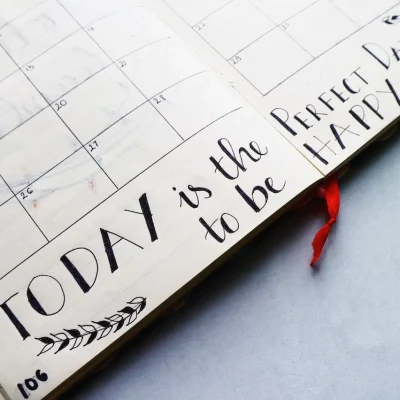 14
15
20
21
27
28
26
22
25
TODAY is the PERFECT DA
to be HAPPY
106